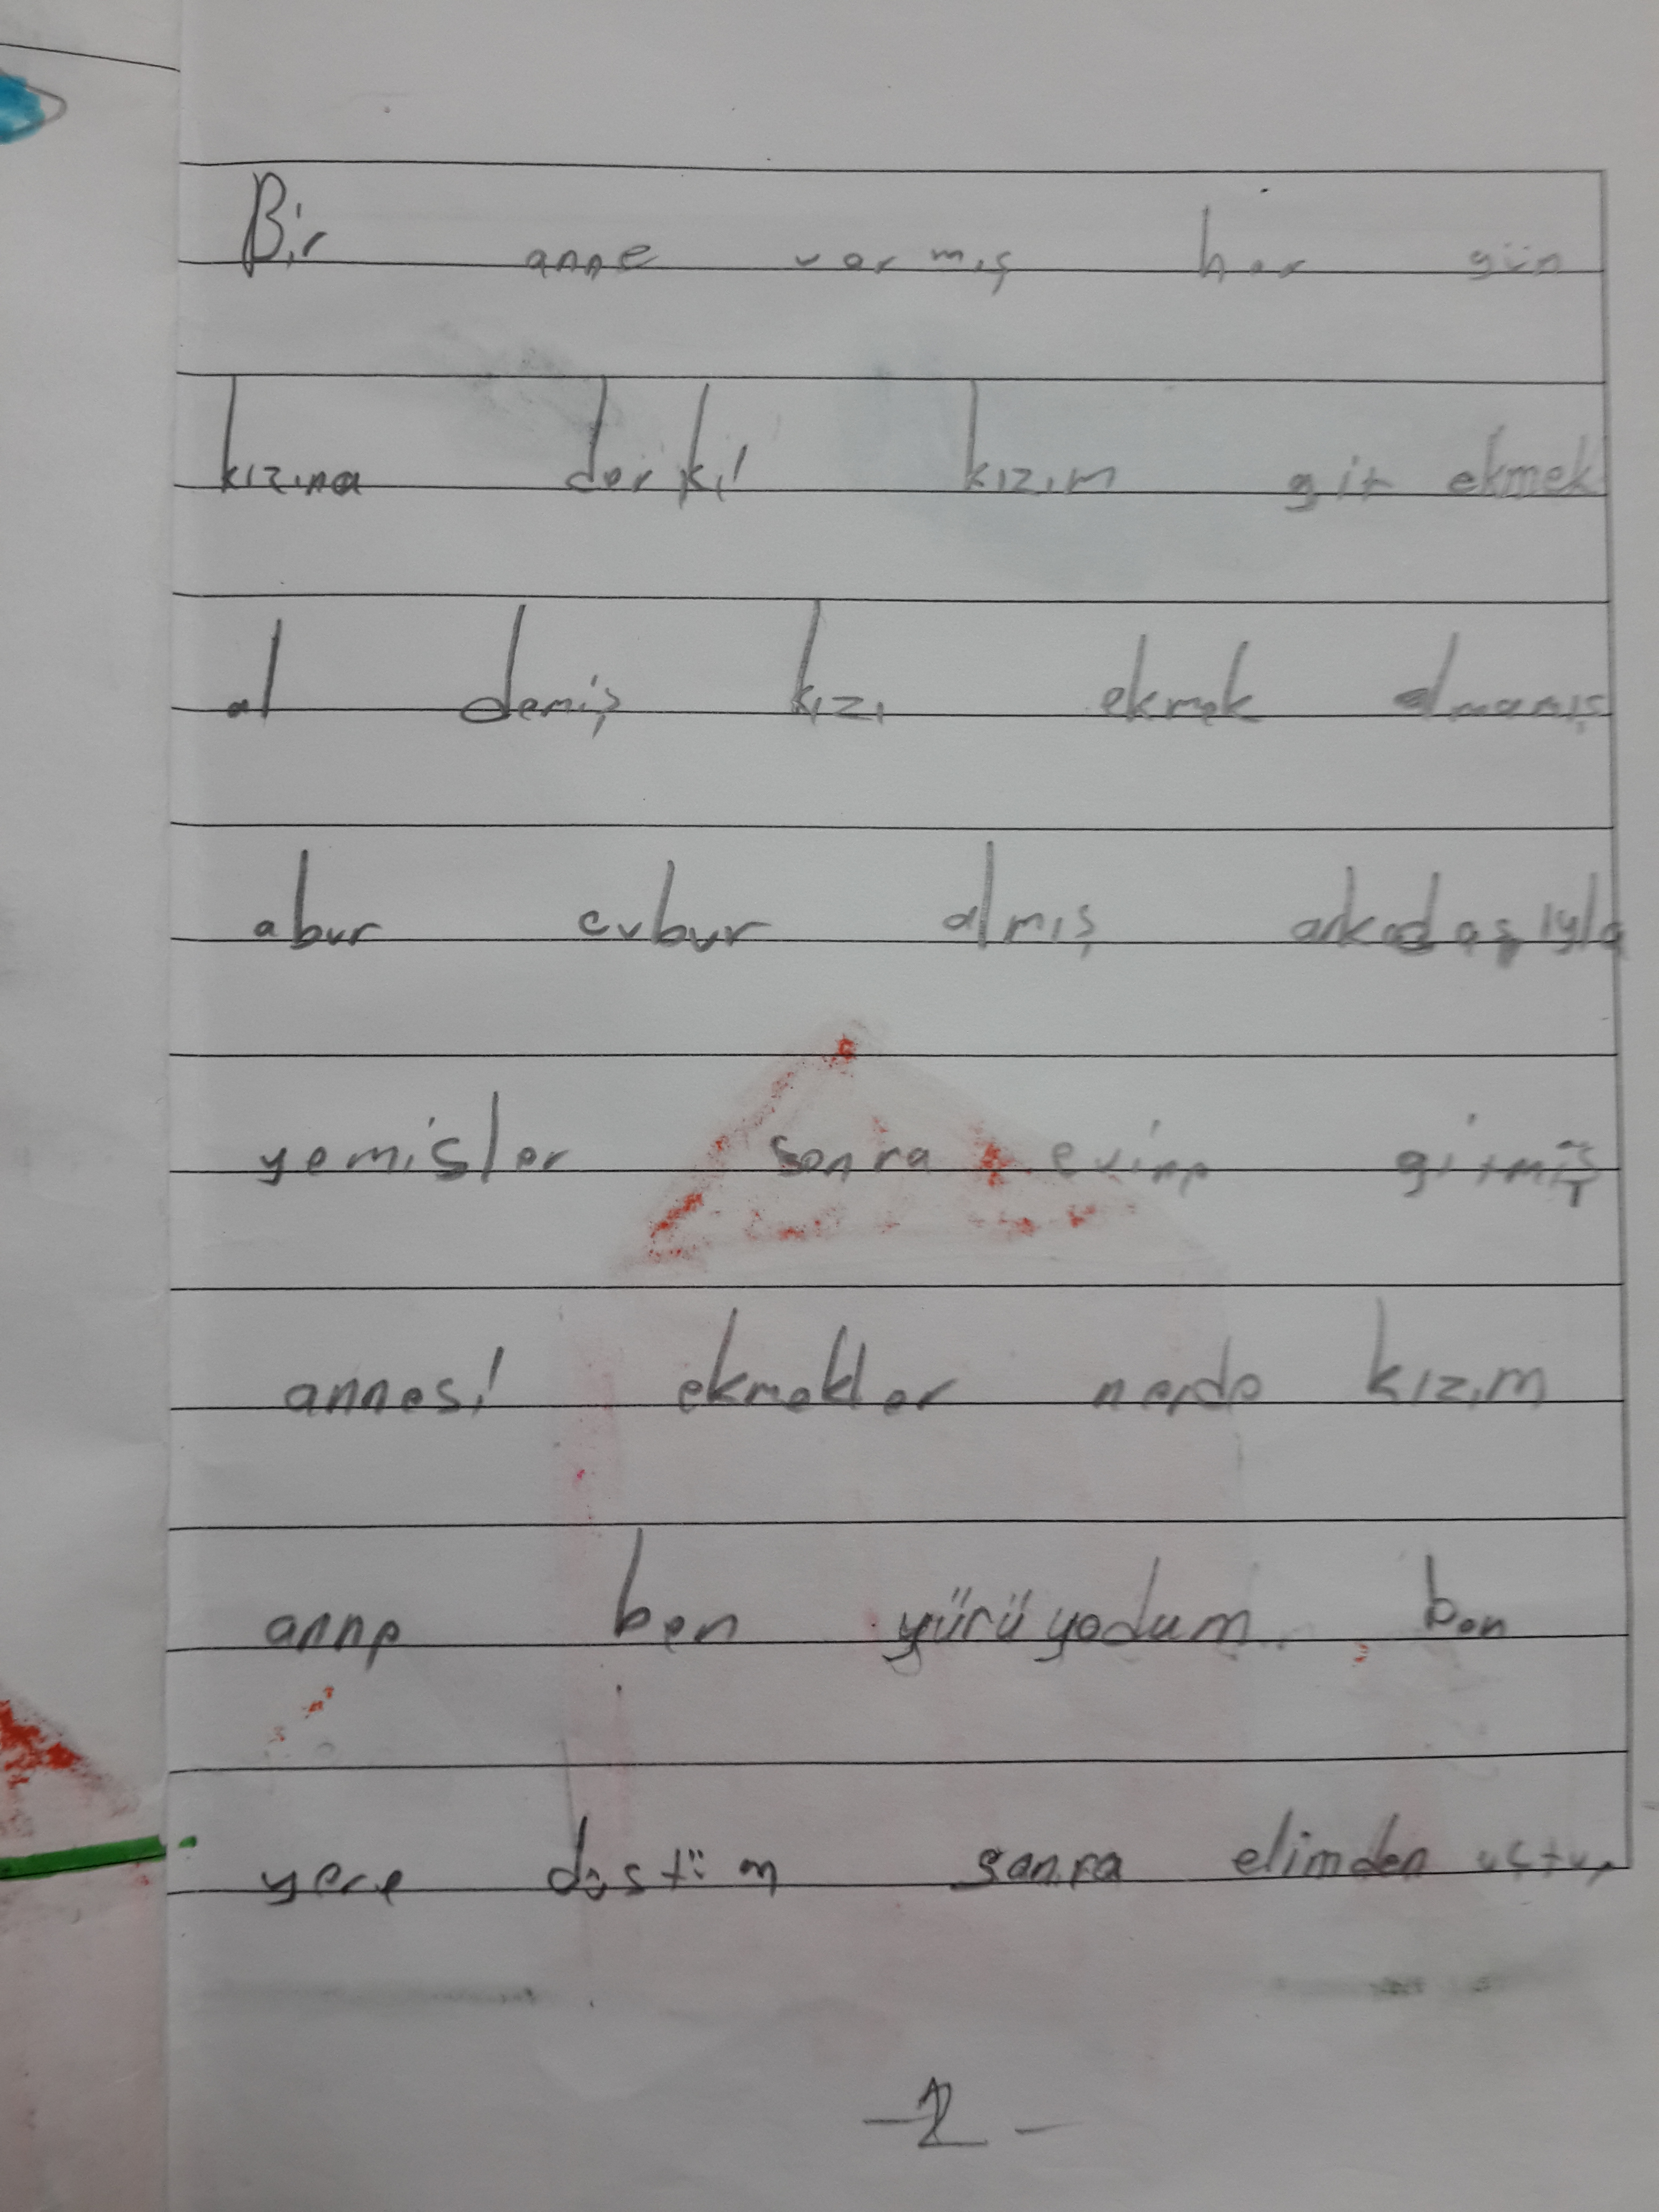 Bir anne varmış her gün
kızına derki! kızım git ekmek
al demiş kızı ekmek almamış
abur cubur almış arkadaşıyla
yemişler sonra evine gitmiş
annesi ekmekler nerde kızım
anne ben yürüyodum ben
yere düştüm sonra elimden uçtu,
-2-